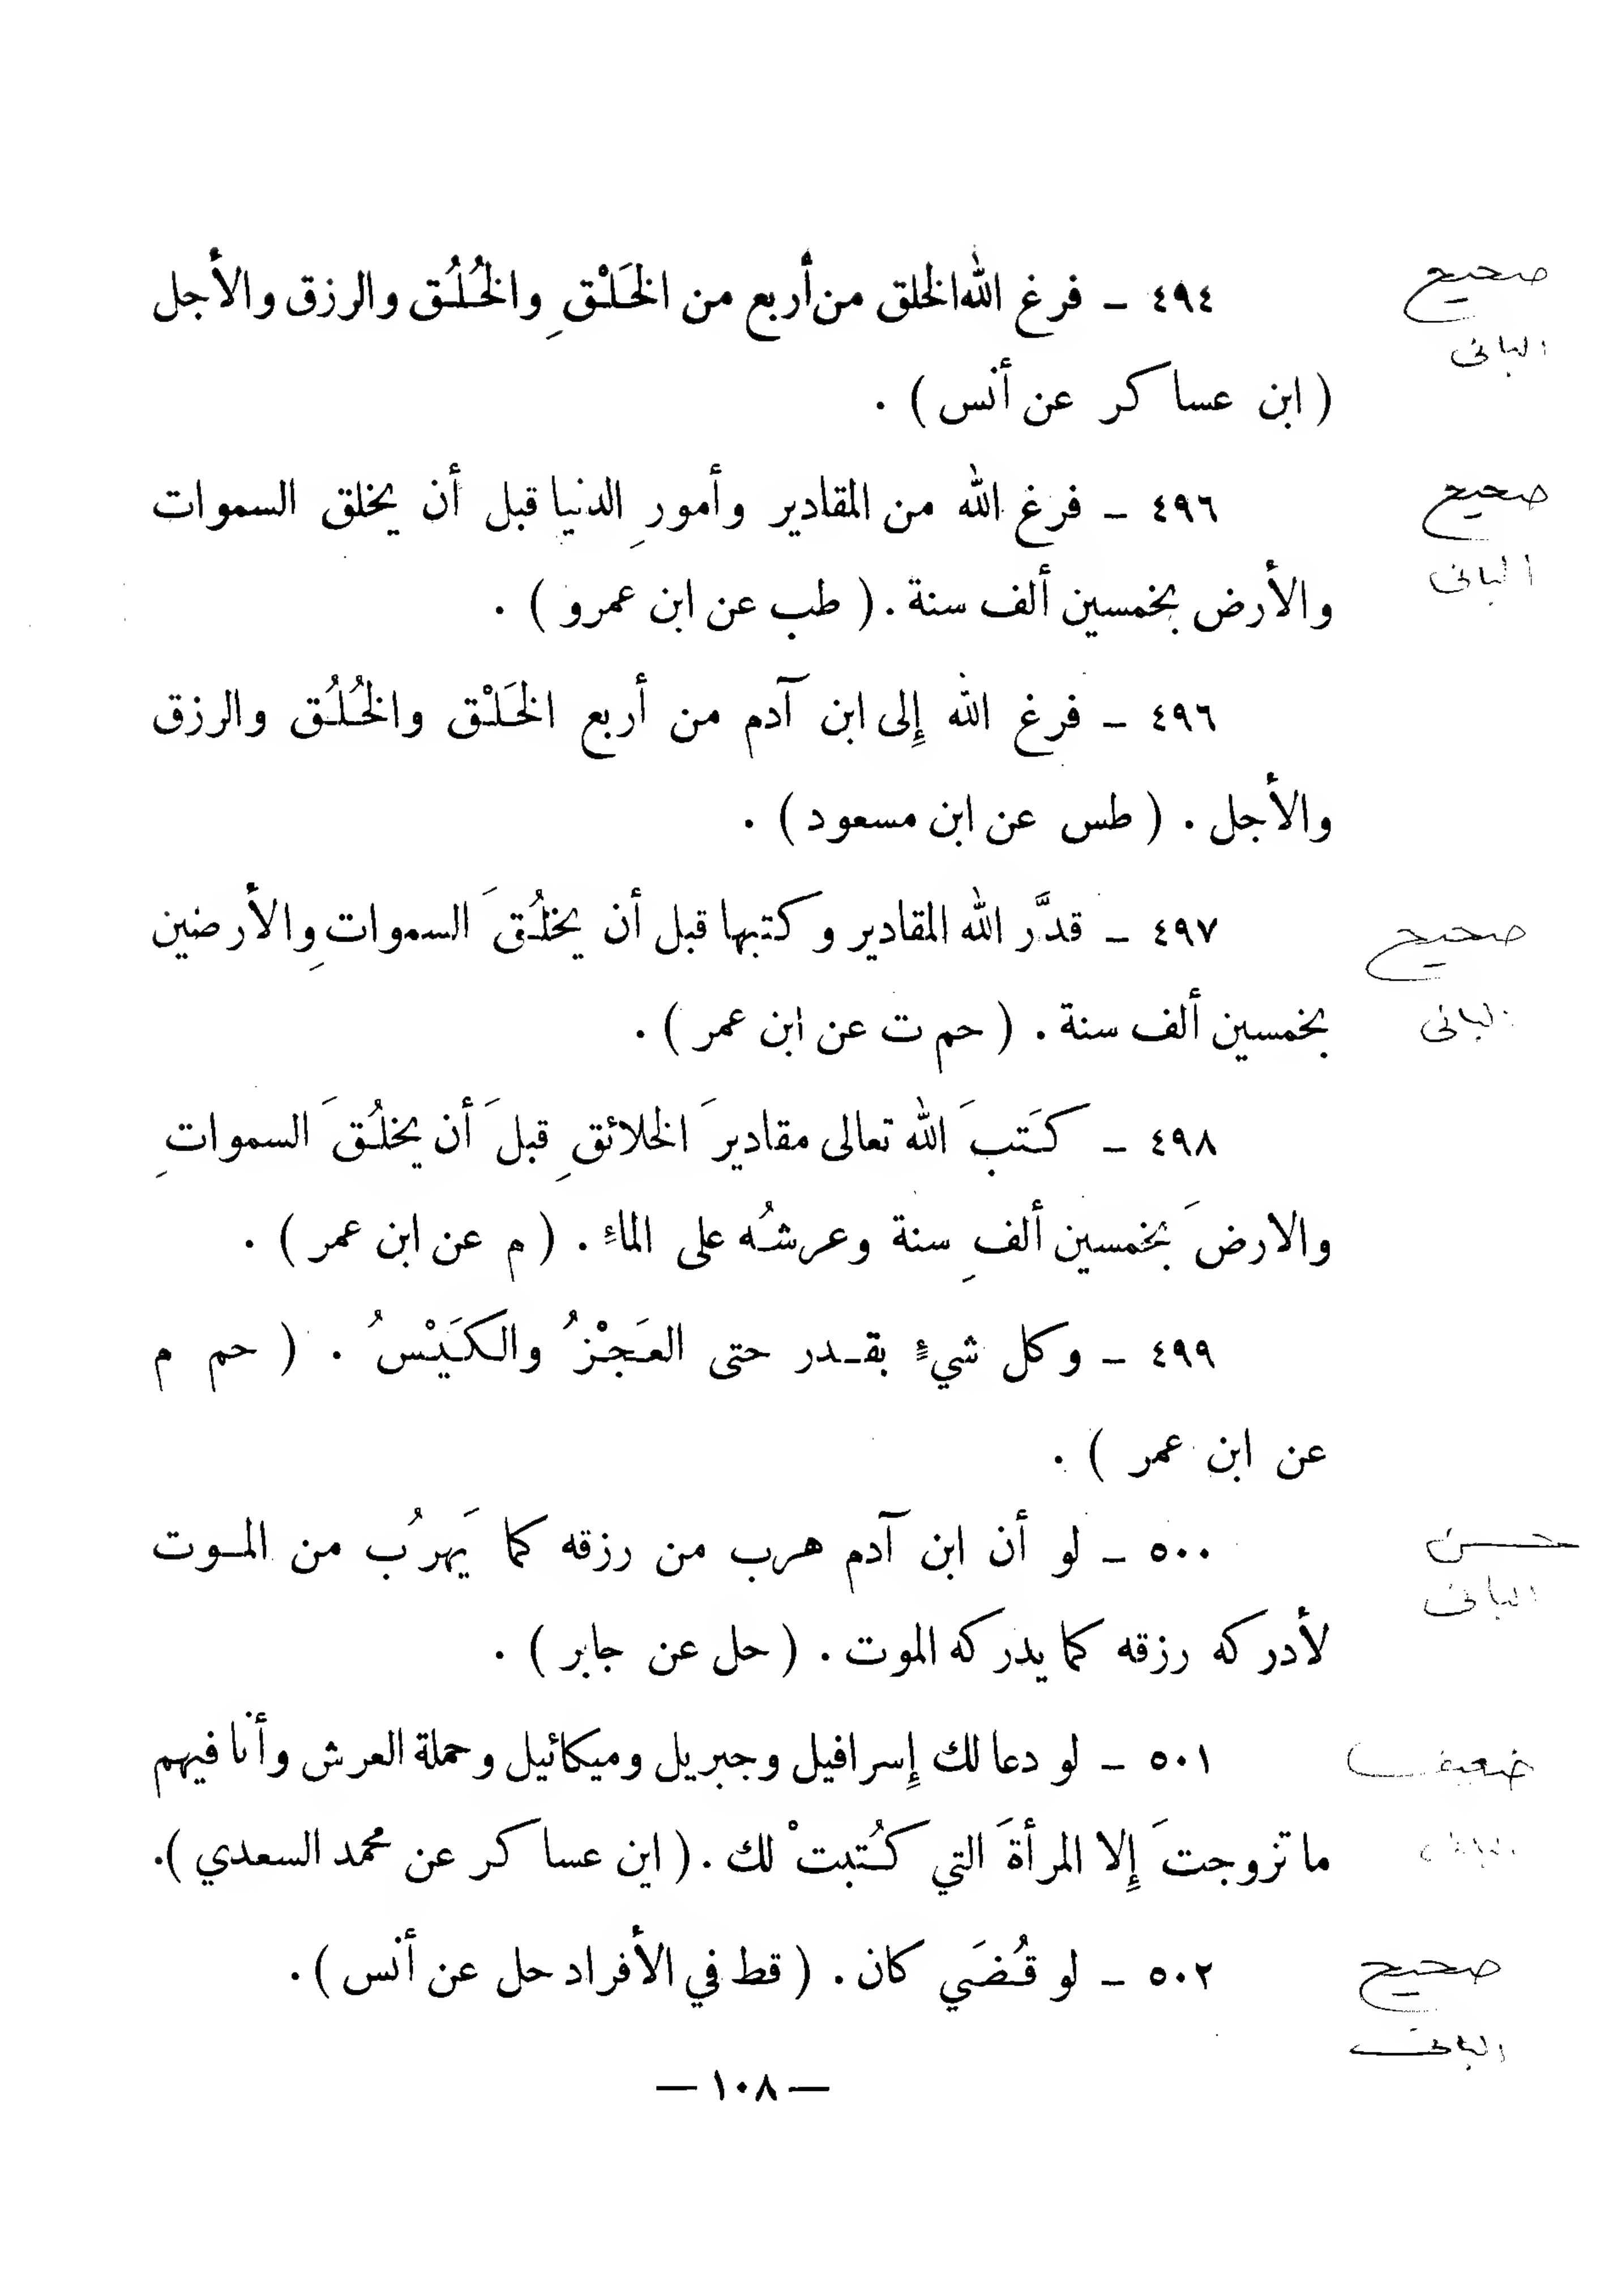 ٤٩٤ – فرغ الله الخلق من أربع من الخَلْقِ والخُلُق والرزق والأجل
صحيح
البانى
( ابن عساكر عن أنس ) .
٤٩٦ – فرغ الله من المقادير وأمورِ الدنيا قبل أن يخلق السموات
صحيح
البانى
والأرض بخمسين ألف سنة . ( طب عن ابن عمرو ) .
٤٩٦ – فرغ الله إِلى ابن آدم من أربع الخَلْق والخُلُق والرزق
والأجل . ( طس عن ابن مسعود ) .
٤٩٧ – قدَّر الله المقادير وكتبها قبل أن يخلُقَ السمواتِ والأرضين
صحيح
البانى
بخمسين ألف سنة . ( حم ت عن ابن عمر ) .
٤٩٨ – كَتبَ الله تعالى مقاديرَ الخلائقِ قبلَ أن يخلُقَ السمواتِ
والارضَ بخمسين ألفِ سنة وعرشُه على الماءِ . ( م عن ابن عمر ) .
٤٩٩ – وكل شيءٍ بقـدر حتى العَجْزُ والكَيْسُ . ( حم م
عن ابن عمر ) .
٥٠٠ – لو أن ابن آدم هرب من رزقه كما يَهرُب من المـوت
حسن
البانى
لأدركه رزقه كما يدركه الموت . ( حل عن جابر ) .
٥٠١ – لو دعا لك إِسرافيل وجبريل وميكائيل وحملة العرش وأنا فيهم
ضعيف
ما تزوجتَ إِلا المرأةَ التي كُتبتْ لك . ( اين عساكر عن محمد السعدي ).
٥٠٢ – لو قُضَي كان . ( قط في الأفراد حل عن أنس ) .
صحيح
البانى
— ١٠٨ —